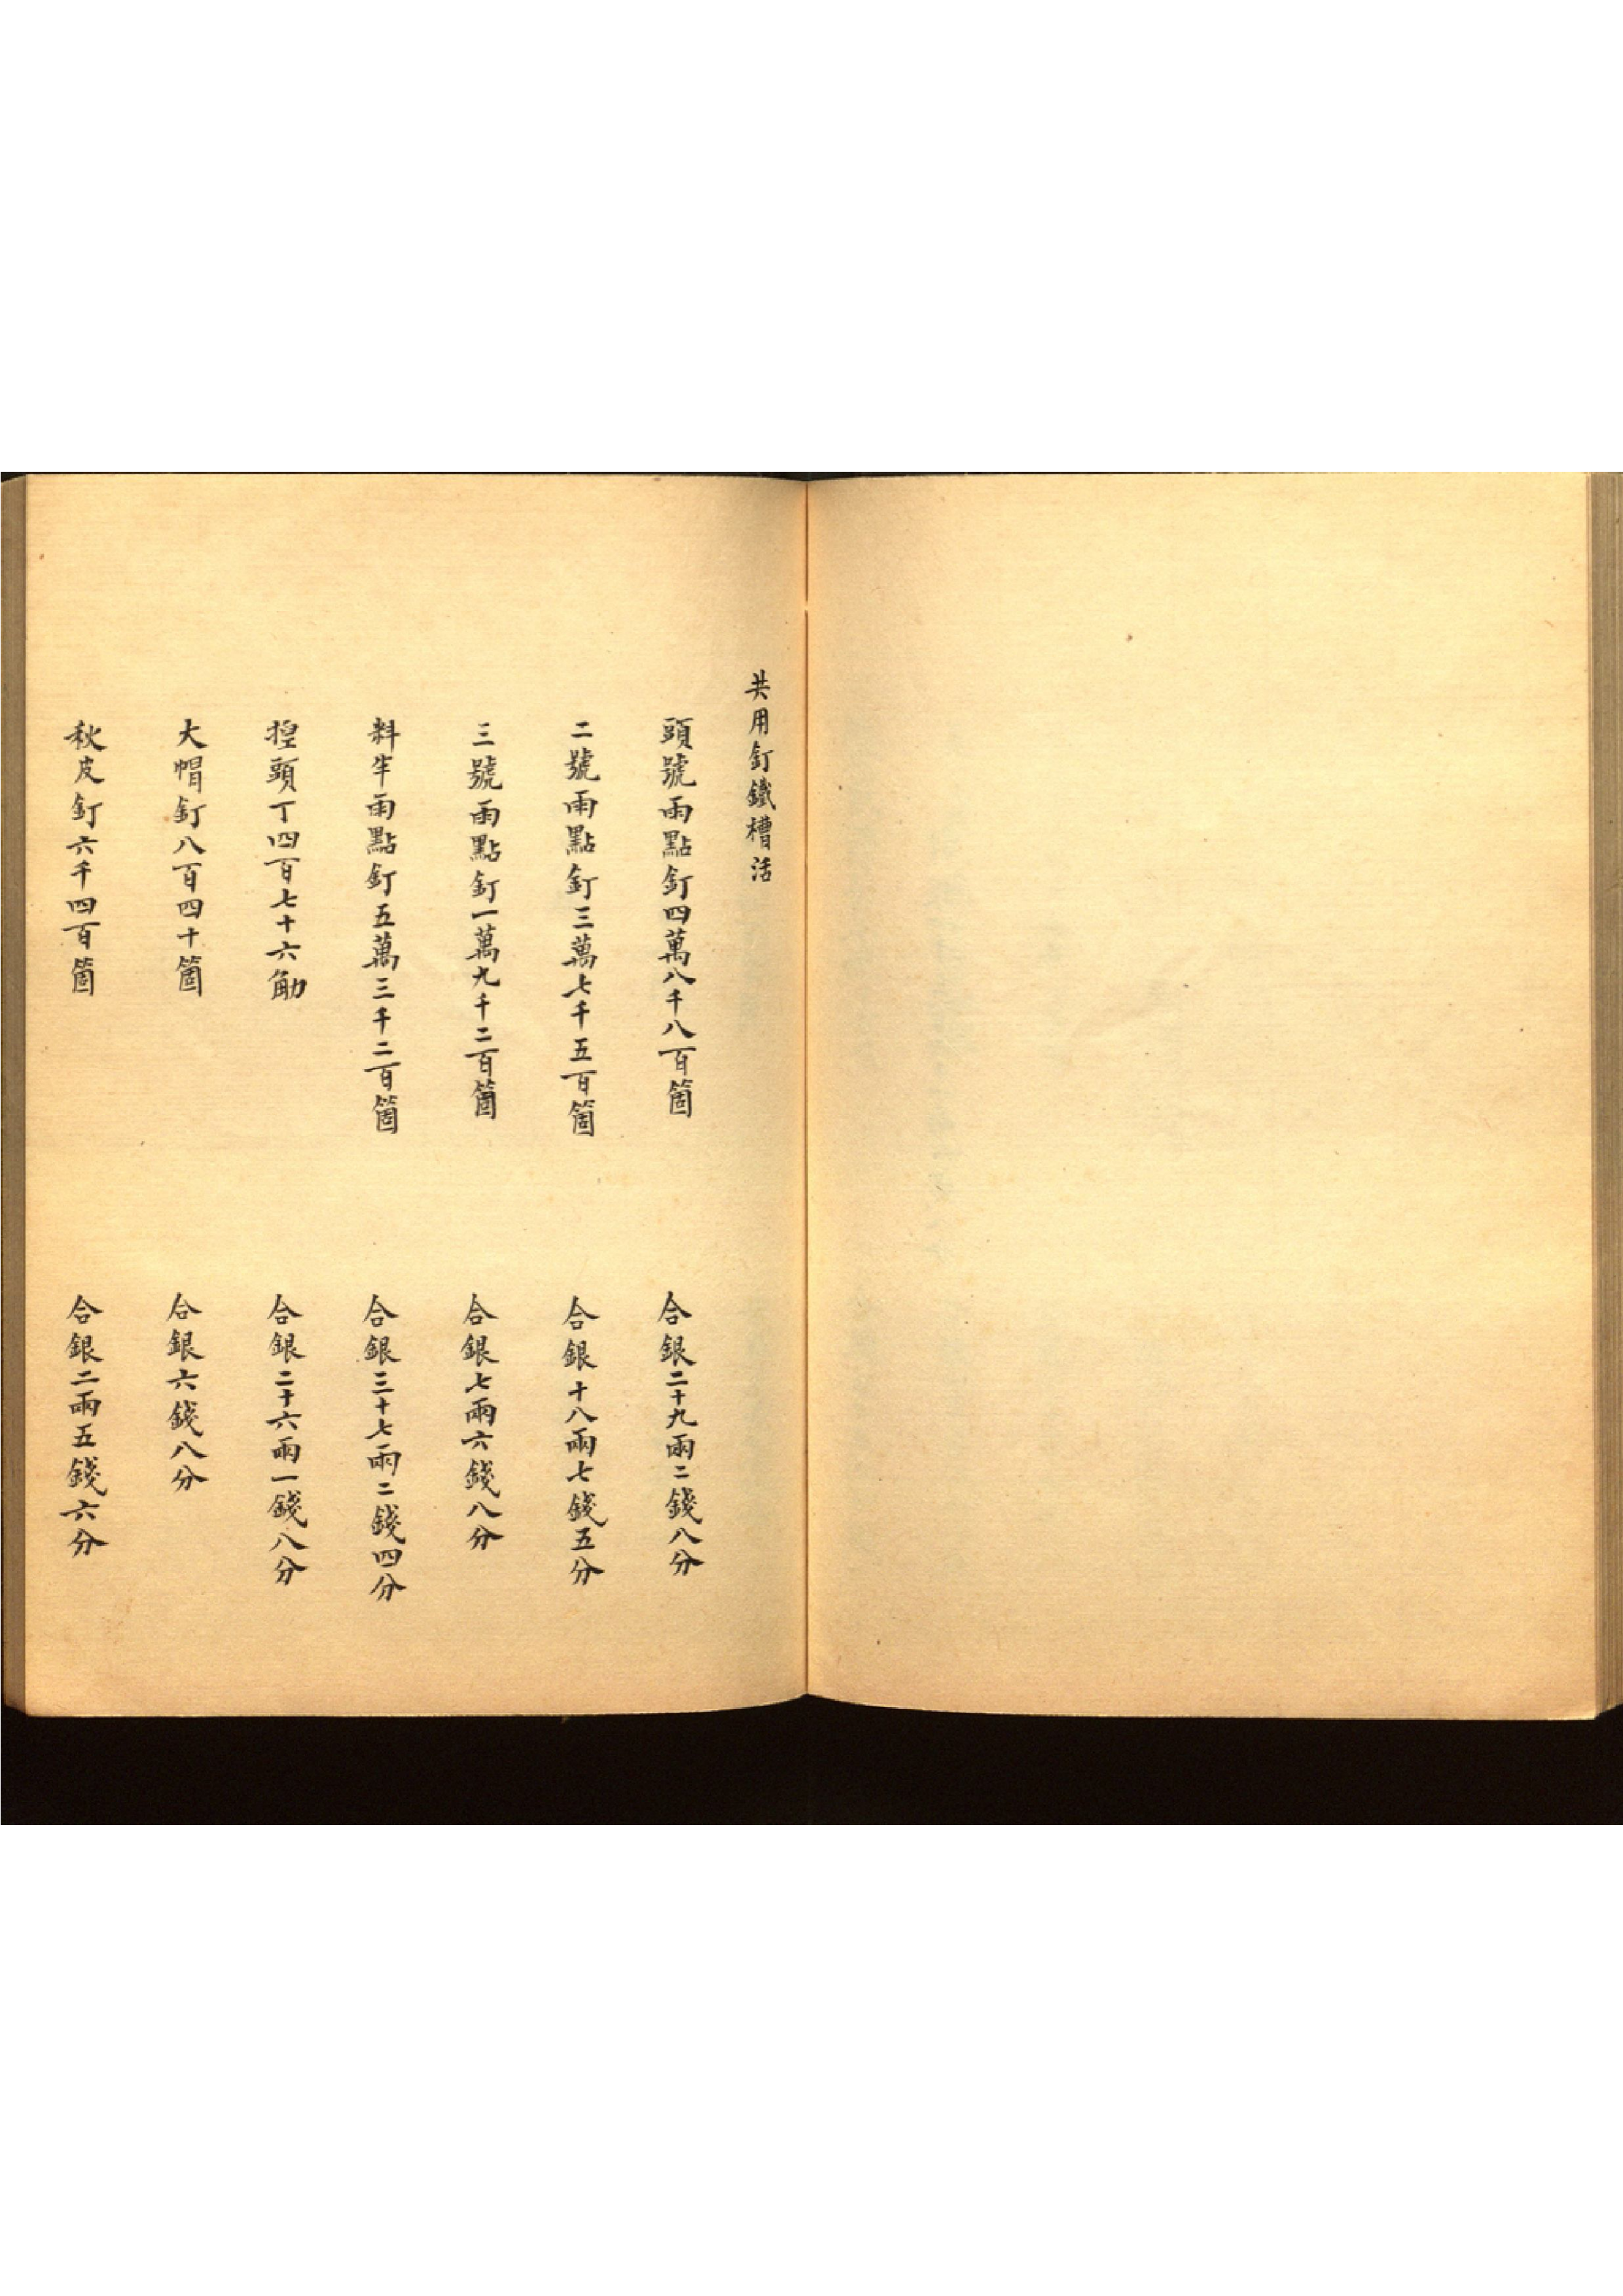 共用釘鐵槽活
頭號雨點釘四萬八千八百箇 合銀二十九兩二錢八分
二號雨點釘三萬七千五百箇 合銀十八兩七錢五分
三號雨點釘一萬九千二百箇 合銀七兩六錢八分
料半雨點釘五萬三千二百箇 合銀三十七兩二錢四分
揑頭丁四百七十六觔 合銀二十六兩一錢八分
大帽釘八百四十箇 合銀六錢八分
秋皮釘六千四百箇 合銀二兩五錢六分